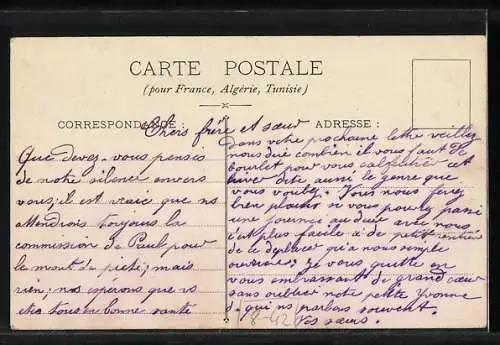 CARTE POSTALE
(pour France, Algérie, Tunisie)
CORRESPONDANCE :
ADRESSE :
Chers frère et sœur
Que devez-vous pensés
de notre silence envers
vous, il est vraie que ns
attendrois toujours la
commission de Paul pour
le mont de piété; mais
rien; ns esperons que vs
etes tous en bonne santé
Dans votre prochaine lettre veillez
nous dire combien il vous faut de
bourlet pour vous calfeutrer cet
hiver dite aussi le genre que
vous voulez. Vous nous ferez
bien plaisir si vous pouvez passé
une journée au avec nous
c'est plus facile à de petit rentier
de se deplacer qu'a nous simple
ouvrières. Je vous quitte en
vous embrassant de grand cœur
sans oublier notre petite Yvonne
de qui ns parlons souvent.
Vos sœurs.